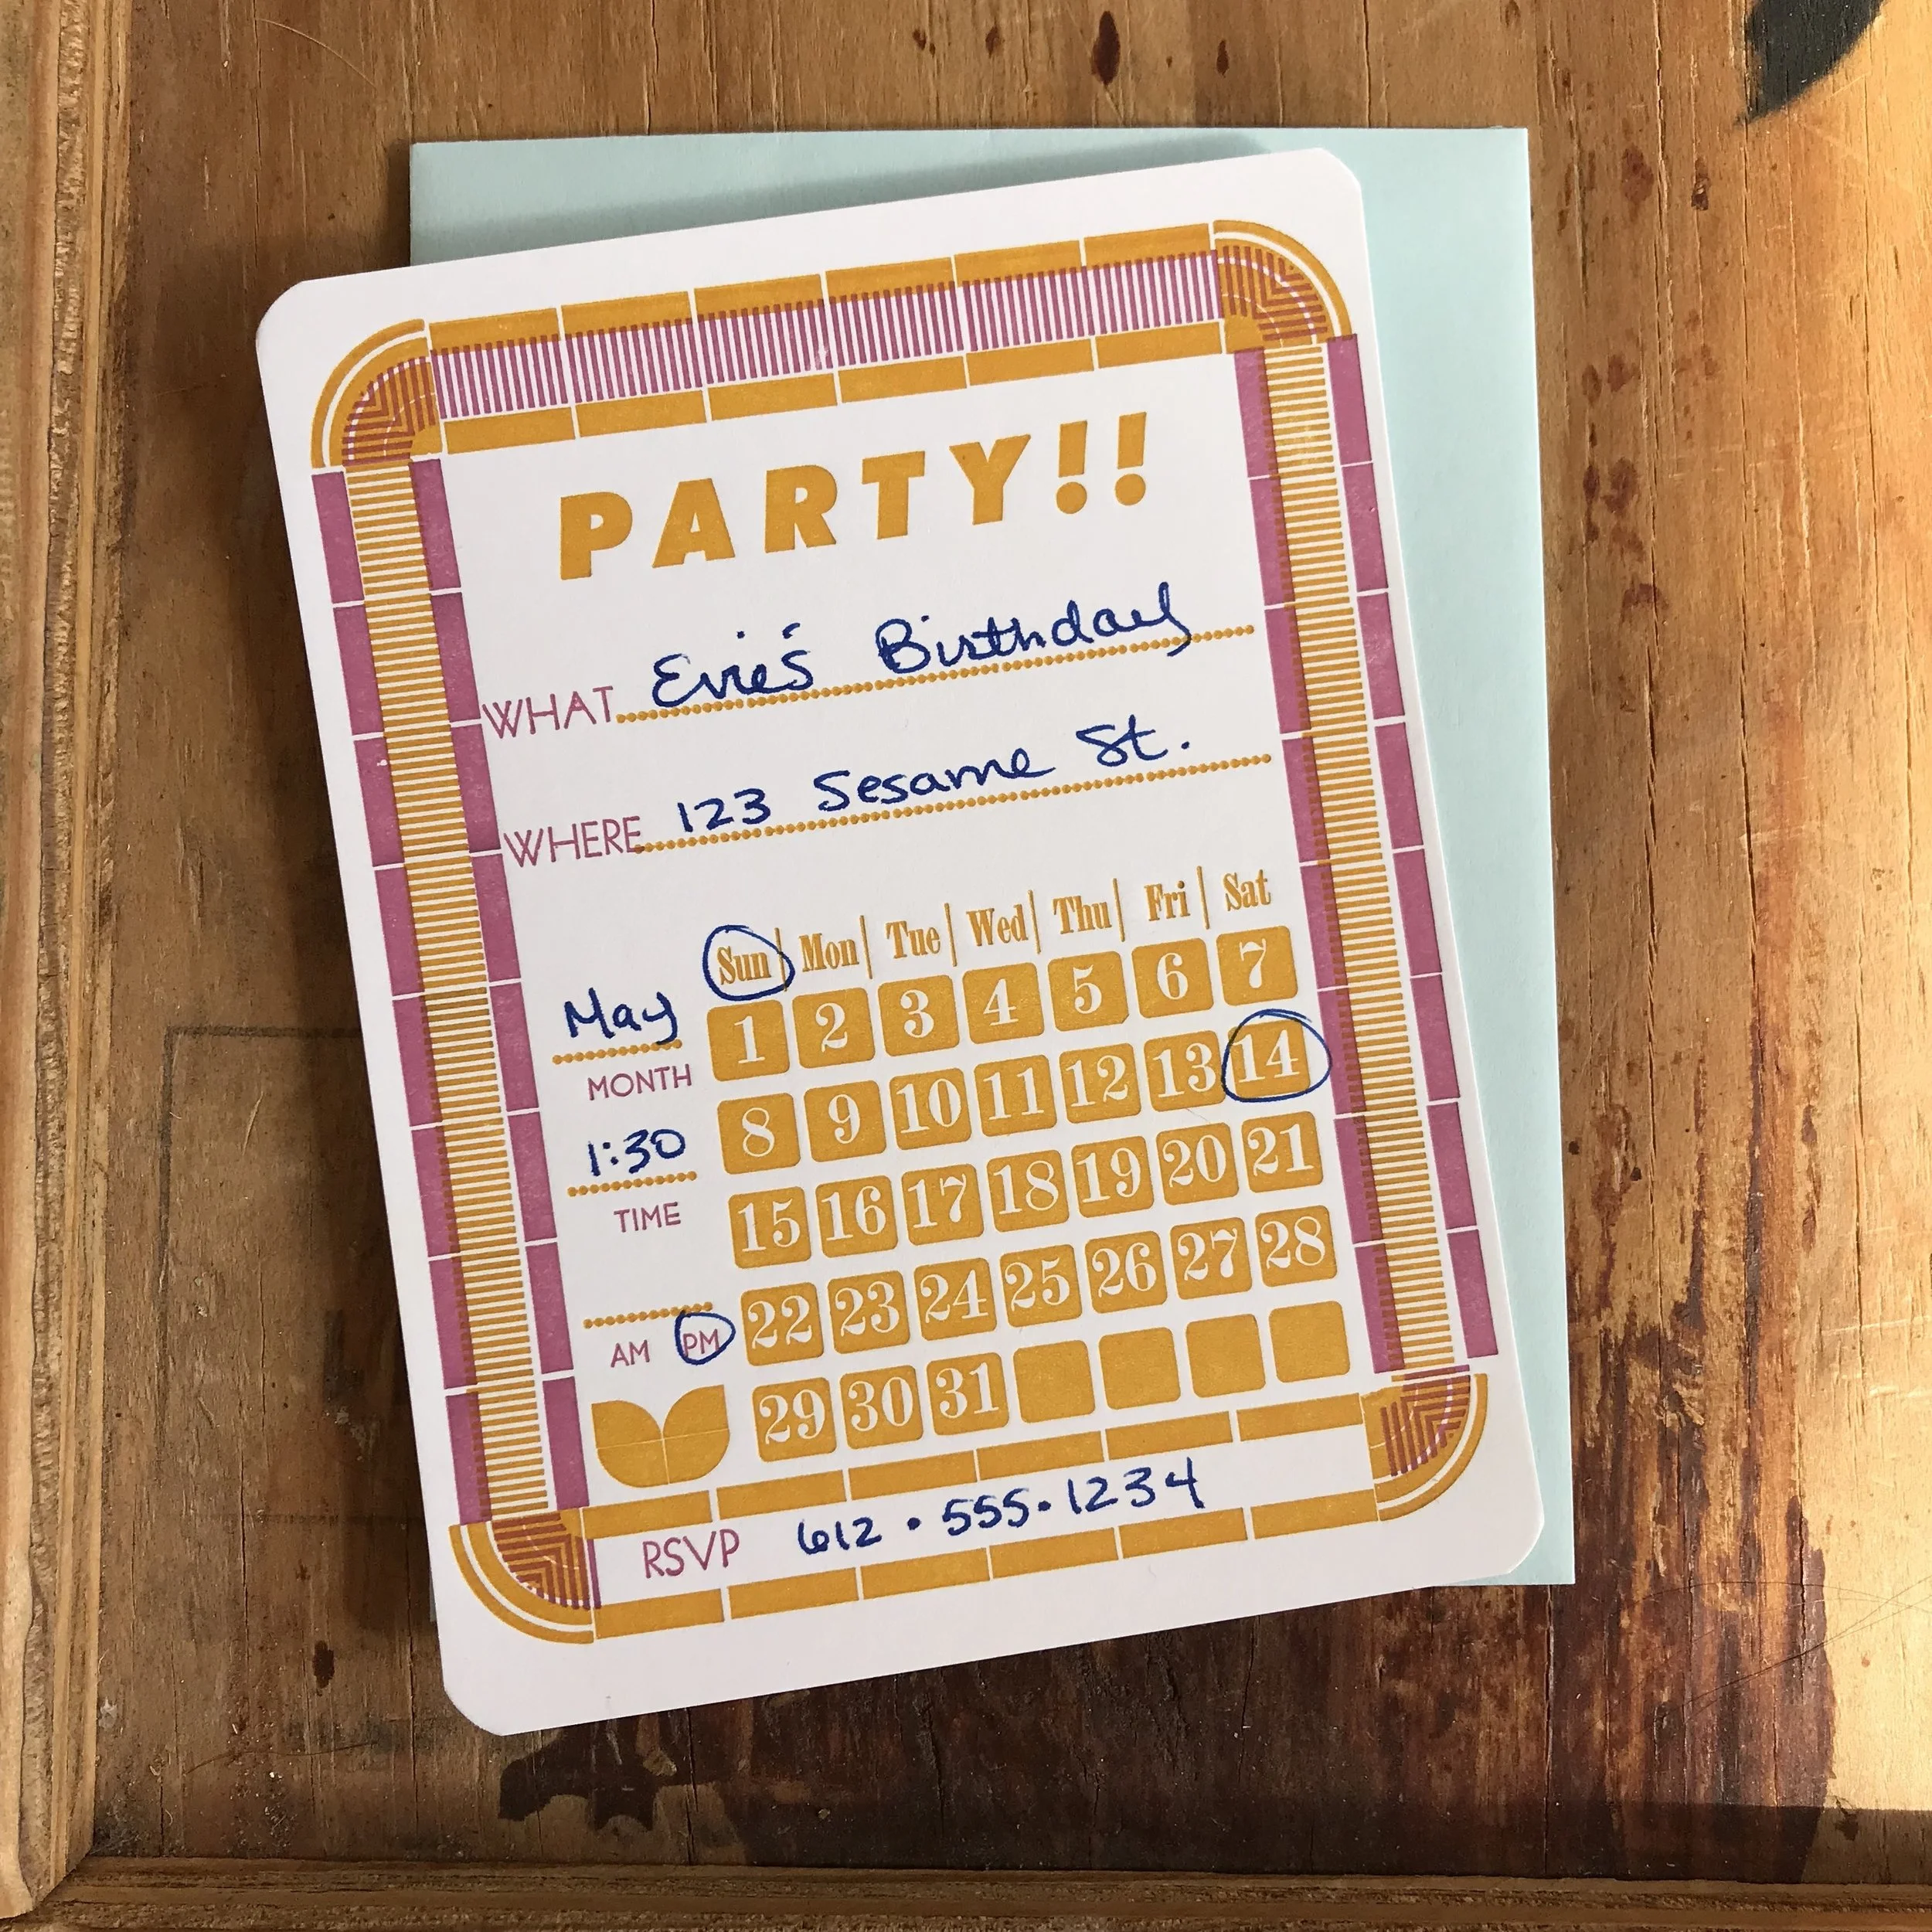 PARTY!!
WHAT Evie's Birthday
WHERE 123 Sesame St.
Sun | Mon | Tue | Wed | Thu | Fri | Sat
May
MONTH
1:30
TIME
AM PM
1 2 3 4 5 6 7
8 9 10 11 12 13 14
15 16 17 18 19 20 21
22 23 24 25 26 27 28
29 30 31
RSVP 612 • 555 • 1234